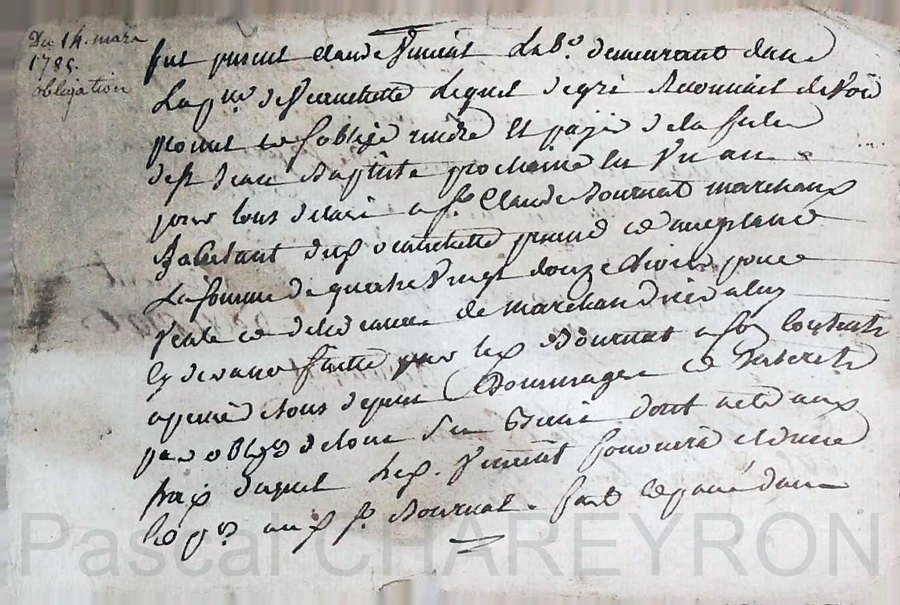 Du 14. mars
1785.
obligation
fut present Claude Vincent Lab.r demeurant dans
La p.sse de Veauchette Lequel de gré Reconnait devoir
promet et s'oblige rendre et payer de la fete
de S.t Jean Baptiste prochaine en Un an
pour tous delais a s.r Claude Bournat marchand
habitant dud. Veauchette present et acceptant
La somme de quatre Vingt douze Livres pour
Vente et delivrance de marchandises a luy
cy devant faitte par led. Bournat a son contentement
a peine de tous depens Dommages et Interets
par oblig.on de tous ses Biens dont acte aux
fraix duquel led. Vincent fournira
aud. s.r Bournat. fait et passé dans
Pascal CHAREYRON